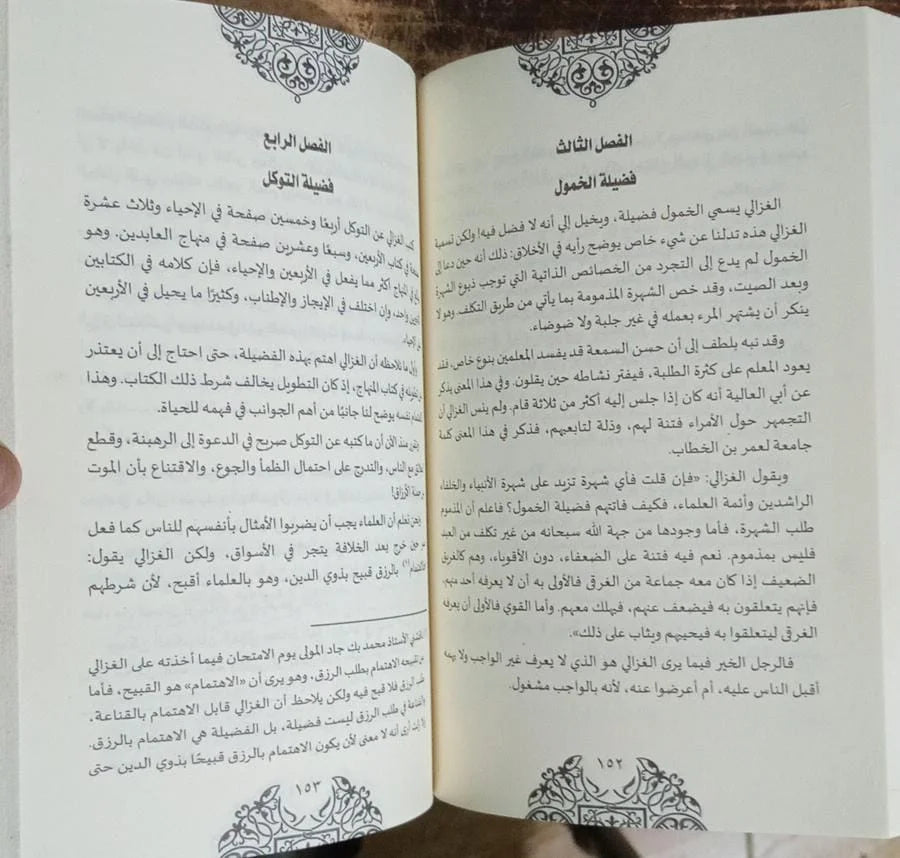 الفصل الثالث
فضيلة الخمول
الغزالي يسمي الخمول فضيلة، ويخيل إلي أنه لا فضل فيه! ولكن تسمية
الغزالي هذه تدلنا عن شيء خاص يوضح رأيه في الأخلاق: ذلك أنه حين دعا إلى
الخمول لم يدع إلى التجرد من الخصائص الذاتية التي توجب ذيوع الشهرة
وبعد الصيت، وقد خص الشهرة المذمومة بما يأتي من طريق التكلف. وهو لا
ينكر أن يشتهر المرء بعمله في غير جلبة ولا ضوضاء.
وقد نبه بلطف إلى أن حسن السمعة قد يفسد المعلمين بنوع خاص، فقد
يعود المعلم على كثرة الطلبة، فيفتر نشاطه حين يقلون. وفي هذا المعنى يذكر
عن أبي العالية أنه كان إذا جلس إليه أكثر من ثلاثة قام. ولم ينس الغزالي أن
التجمهر حول الأمراء فتنة لهم، وذلة لتابعيهم، فذكر في هذا المعنى كلمة
جامعة لعمر بن الخطاب.
ويقول الغزالي: «فإن قلت فأي شهرة تزيد على شهرة الأنبياء والخلفاء
الراشدين وأئمة العلماء، فكيف فاتتهم فضيلة الخمول؟ فاعلم أن المذموم
طلب الشهرة، فأما وجودها من جهة الله سبحانه من غير تكلف من العبد
فليس بمذموم. نعم فيه فتنة على الضعفاء، دون الأقوياء، وهم كالغريق
الضعيف إذا كان معه جماعة من الغرقى فالأولى به أن لا يعرفه أحد منهم،
فإنهم يتعلقون به فيضعف عنهم، فيهلك معهم. وأما القوي فالأولى أن يعرفه
الغرقى ليتعلقوا به فيحييهم ويثاب على ذلك».
فالرجل الخير فيما يرى الغزالي هو الذي لا يعرف غير الواجب ولا يهمه
أقبل الناس عليه، أم أعرضوا عنه، لأنه بالواجب مشغول.
١٥٢
الفصل الرابع
فضيلة التوكل
كتب الغزالي عن التوكل أربعًا وخمسين صفحة في الإحياء وثلاث عشرة
صفحة في كتاب الأربعين، وسبعًا وعشرين صفحة في منهاج العابدين. وهو
في المنهاج أكثر مما يفعل في الأربعين والإحياء، فإن كلامه في الكتابين
واحد، وإن اختلف في الإيجاز والإطناب، وكثيرًا ما يحيل في الأربعين
الإحياء.
وأول ما نلاحظه أن الغزالي اهتم بهذه الفضيلة، حتى احتاج إلى أن يعتذر
في كتاب المنهاج، إذ كان التطويل يخالف شرط ذلك الكتاب. وهذا
نفسه يوضح لنا جانبًا من أهم الجوانب في فهمه للحياة.
منذ الآن أن ما كتبه عن التوكل صريح في الدعوة إلى الرهبنة، وقطع
الناس، والتدرج على احتمال الظمأ والجوع، والاقتناع بأن الموت
الأرزاق!
ونحن نعلم أن العلماء يجب أن يضربوا الأمثال بأنفسهم للناس كما فعل
حين خرج بعد الخلافة يتجر في الأسواق، ولكن الغزالي يقول:
(١) بالرزق قبيح بذوي الدين، وهو بالعلماء أقبح، لأن شرطهم
الأستاذ محمد بك جاد المولى يوم الامتحان فيما أخذته على الغزالي
تقبيحه الاهتمام بطلب الرزق، وهو يرى أن «الاهتمام» هو القبيح، فأما
طلب الرزق فلا قبح فيه ولكن يلاحظ أن الغزالي قابل الاهتمام بالقناعة،
والقناعة في طلب الرزق ليست فضيلة، بل الفضيلة هي الاهتمام بالرزق.
أرى أنه لا معنى لأن يكون الاهتمام بالرزق قبيحًا بذوي الدين حتى
١٥٣